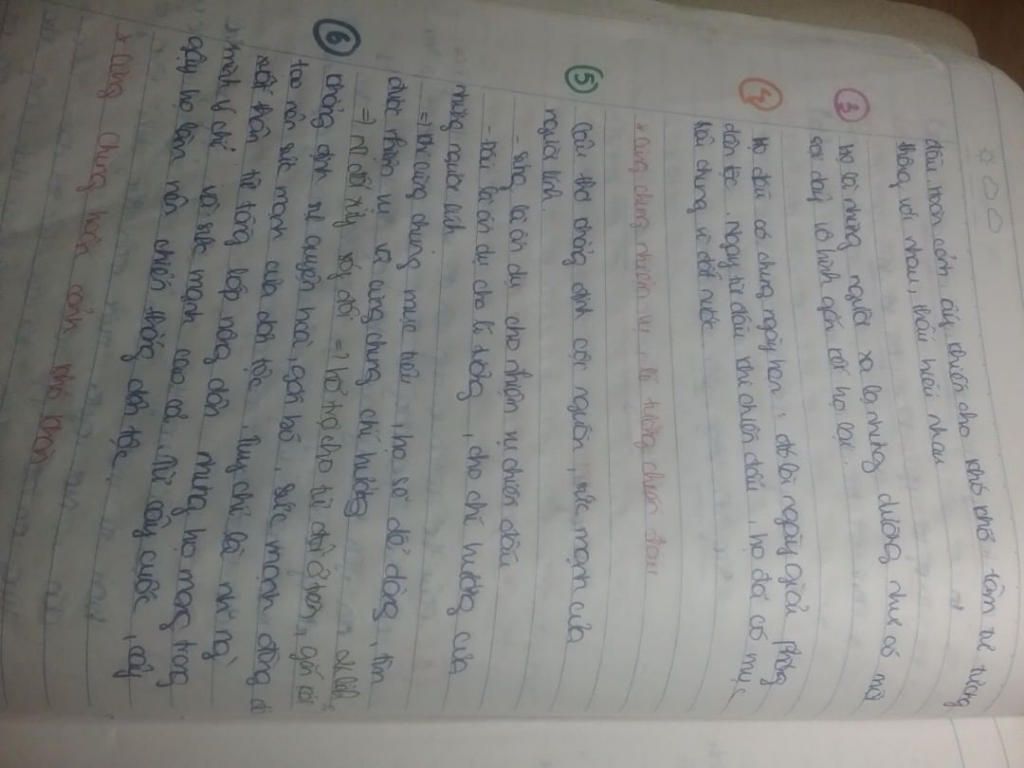 chiều hoàn cảnh ấy khiến cho khó khổ tâm tư tương
thông với nhau, thấu hiểu nhau
③ Họ là những người xa lạ nhưng dường như có một
sợi dây vô hình gắn kết họ lại.
④ Họ đều có chung ngày hẹn: đó là ngày giải phóng
dân tộc. Ngay từ đầu khi chiến đấu, họ đã có mục
tiêu chung vì đất nước
* cùng chung nhiệm vụ, lí tưởng chiến đấu
⑤ Câu thơ khẳng định cội nguồn, sức mạnh của
người lính.
- súng là ẩn dụ cho nhiệm vụ chiến đấu
- Đầu là ẩn dụ cho lí tưởng, cho chí hướng của
những người lính
=> Khi cùng chung mục tiêu, họ sẽ dễ đồng, tâm
được nhiệm vụ và cùng chung chí hướng
=> Từ đôi xây sóng đôi => bổ trợ cho từ đôi ở trên, gợi rõ
⑥ khẳng định sự chuyển hoá, gắn bó, sức mạnh đồng đ
tạo nên sức mạnh của dân tộc. Tuy chỉ là những
xuất thân từ tầng lớp nông dân nhưng họ mang trong
mình ý chí và sức mạnh cao cả. Từ cây cuốc, cây
gậy họ làm nên chiến thắng dân tộc.
* Cùng chung hoàn cảnh khó khăn